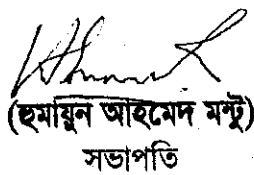 (হুমায়ুন আহমেদ মন্টু)
সভাপতি